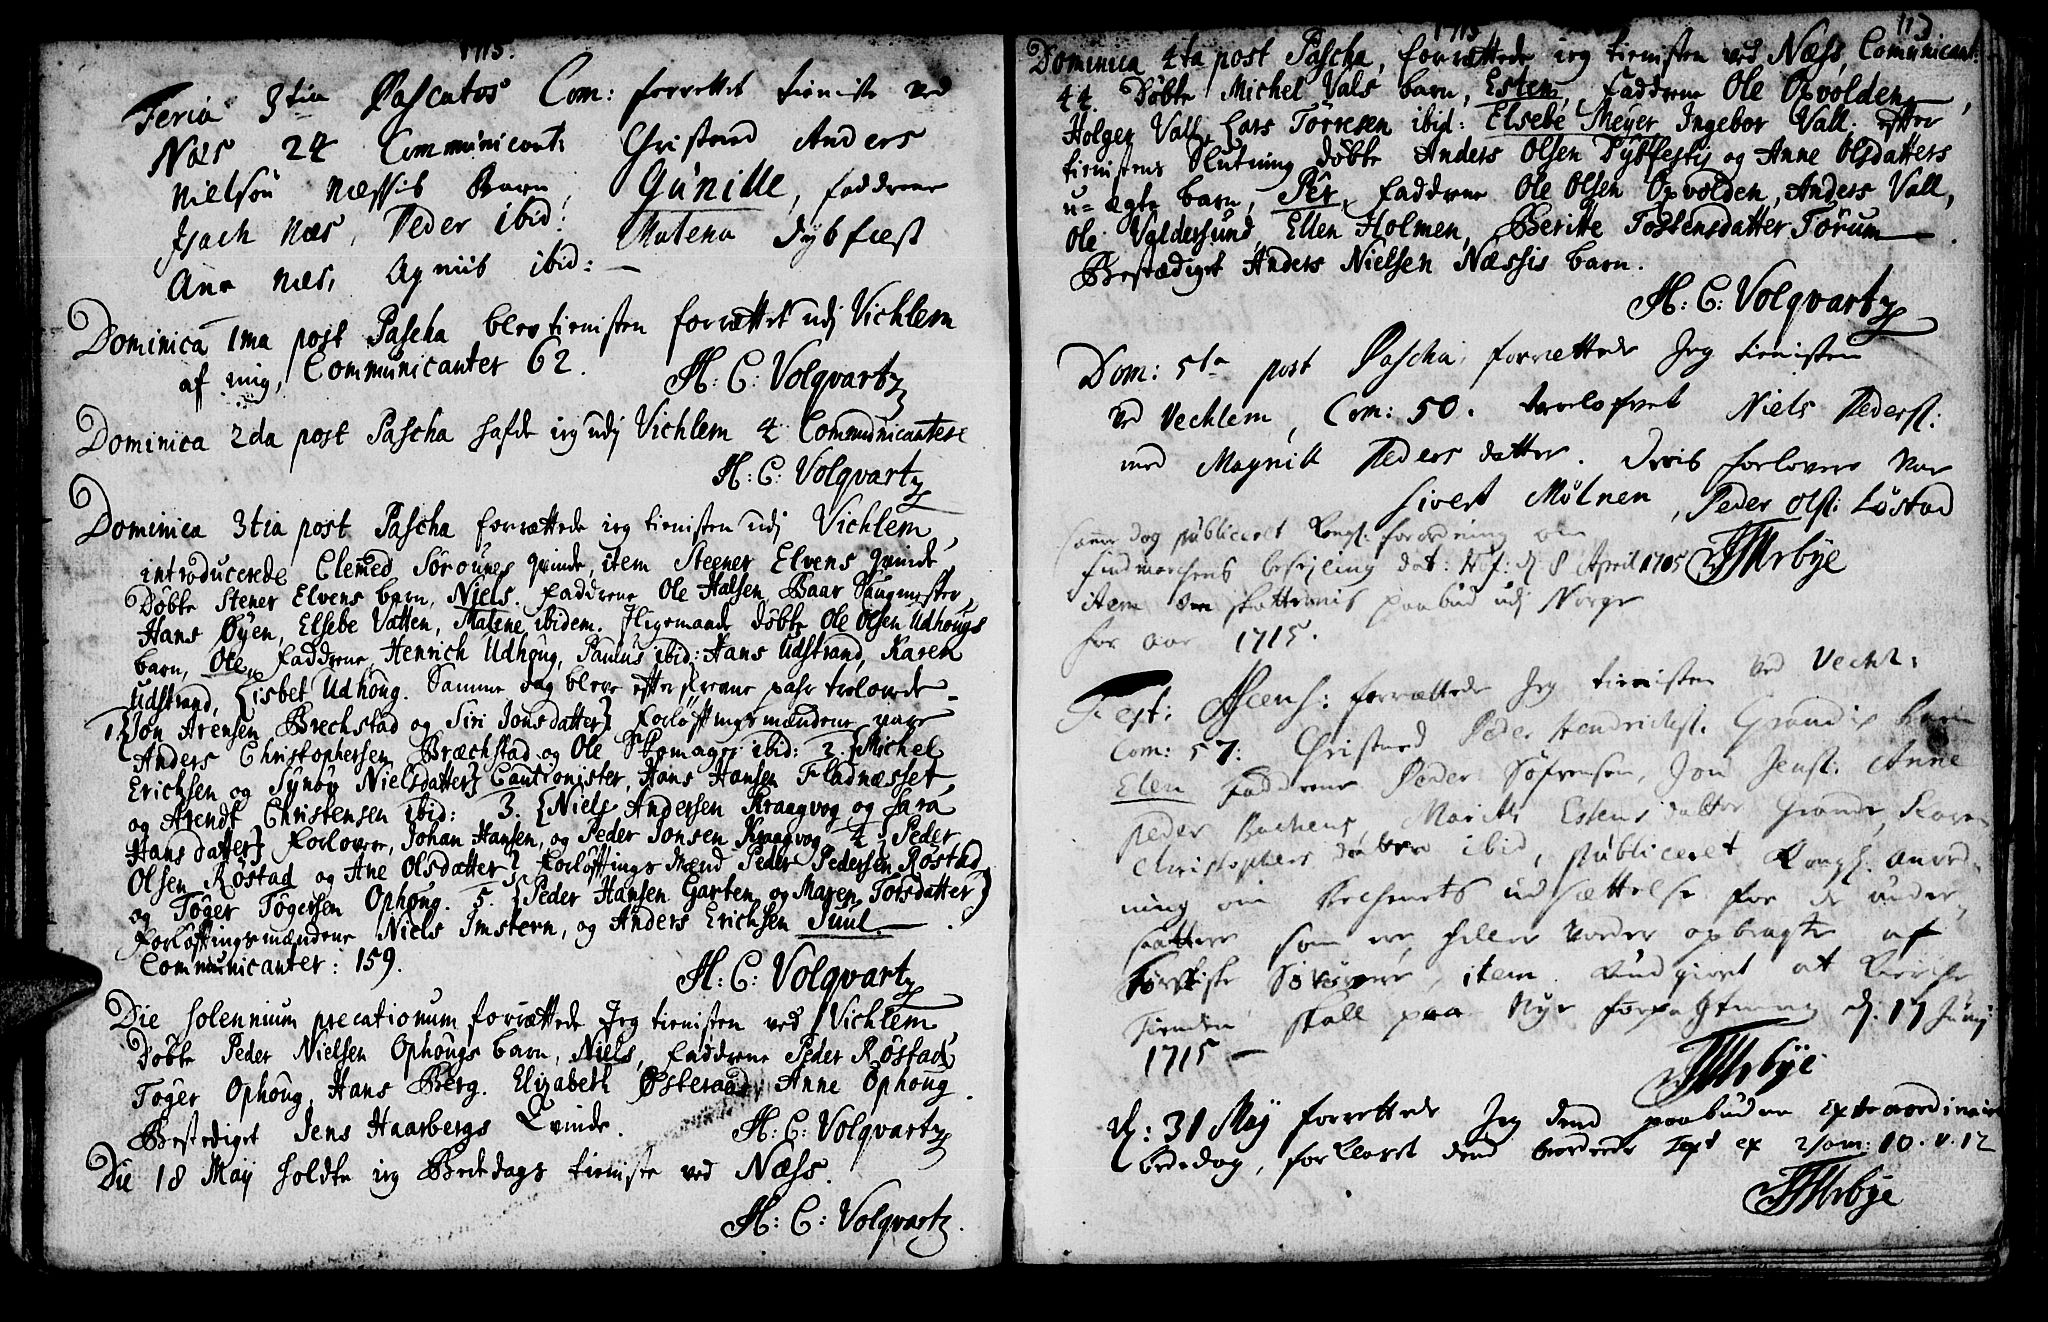 1715.
Feria 3tia Pascatos Com: forrettet tieniste ved
Næs 24 Communicant: Christned Anders
Nielsøn Næssis Barn, Gunille, faddrene
Isach Næs, Peder ibid: Malena Dybfæst
Ane Næs, Agniis ibid:
Dominica 1ma post Pascha blev tienisten forrættet udj Vichlem
af mig, Communicanter 62.
H: C: Volqvartz
Dominica 2da post Pascha hafde ieg udj Vichlem 4 Communicantere
H: C: Volqvartz
Dominica 3tia post Pascha forrættede ieg tienisten udj Vichlem,
introducerede Clemed Sørounes qvinde, item Steener Elvens qvinde,
Døbte Stener Elvens barn, Niels. Faddrene Ole Halsen, Baar Saugmester,
Hans Øyen, Elsebe Vatten, Malene ibidem. Iligemaade døbte Ole Olsen Udhougs
barn, Ole, Faddrene, Henrich Udhoug, Paulus ibid: Hans Udstrand, Karen
Udstrand, Lisbet Udhoug. Samme dag bleve efterskrevne pahr trolovede
1 {Jon Arensen Brechstad og Siri Jonsdatter} Forløftingsmændene vare
Anders Christophersen Bræchstad og Ole Skomager ibid: 2. {Michel
Erichsen og Synøy Nielsdatter} Cautionister, Hans Hansen Fladnæsset,
og Arendt Christensen ibid: 3. {Niels Andersen Kraagvog og Sara
Hansdatter} Forlovere, Johan Hansen, og Peder Jonsen Kraagvog 4 {Peder
Olsen Røstad og Ane Olsdatter} Forløftings Mænd Peder Pedersen Røstad
og Tøger Tøgersen Ophoug. 5. {Peder Hansen Garten og Maren Tolsdatter}
Forløftingsmændene Niels Imstern, og Anders Erichsen Juul
Communicanter: 159.
H: C: Volqvartz
Die solennium precationum forrættede Jeg tienisten ved Vichlem,
Døbte Peder Nielsen Ophougs barn, Niels, Faddrene Peder Røstad,
Tøger Ophoug, Hans Berg. Elizabeth Østeraad, Anne Ophoug.
Bestediget Jens Haarbergs Qvinde.
H: C: Volqvartz
Die 18 Maij holdte ieg Bededags tieniste ved Næss.
H: C: Volqvartz.
1715
113
Dominica 4ta post Pascha, forrættede ieg tienisten ved Næss, Comunicant:
44. Døbte Michel Vals barn, Esten, Faddrene Ole Opvolden,
Holger Vall, Lars Tørresen ibid: Elsebe Meyer Ingebor Vall. Efter
tienistens Slutning døbte Anders Olsen Dybfestis og Anne Olsdatters
u-egte barn, Per, Faddrene Ole Olsen Opvolden, Anders Vall,
Ole Valdersund, Ellen Holmen, Beritte Tostensdatter Tørum
Bestædiget Anders Nielsen Næssis barn.
H: C: Volqvartz
Dom: 5ta post Pascha, forrættede Jeg tienisten
ved Vechlem, Com: 50. trolofvet Niels Peders:
med Magnill Peders datter. deris forlovere var
Sivert Mølnen, Peder Ols: Løstad
samme dag publiceret Kongl: forordning om
findmarchens besejling dat: d: 8 April 1715
item om skatternis paabud udj Norge
for aar 1715.
Fest: Ascens: forrættede Jeg tienisten ved Vechl:
Com: 57: Christned Peder Hendrichs: Grandis barn
Elen Faddrene Peder Søfrensøn, Jon Jens: Anne
Peder Bachens, Maritte Estens datter Grande, Karen
Christophers datter ibid, publiceret Kongl. anord-
ning om udsættelse for de under-
saatter som ere heller vorder opbragte af
Tørkiske Søröver, item kundgiort at Kirche
Tienden skall paa Nye forpagtning d: 17 Junij
1715
d: 31 Maij forrettede Jeg dend paabudne extraordinair
bededag, forklaret dend text ex 2 Sam: 10. v. 12